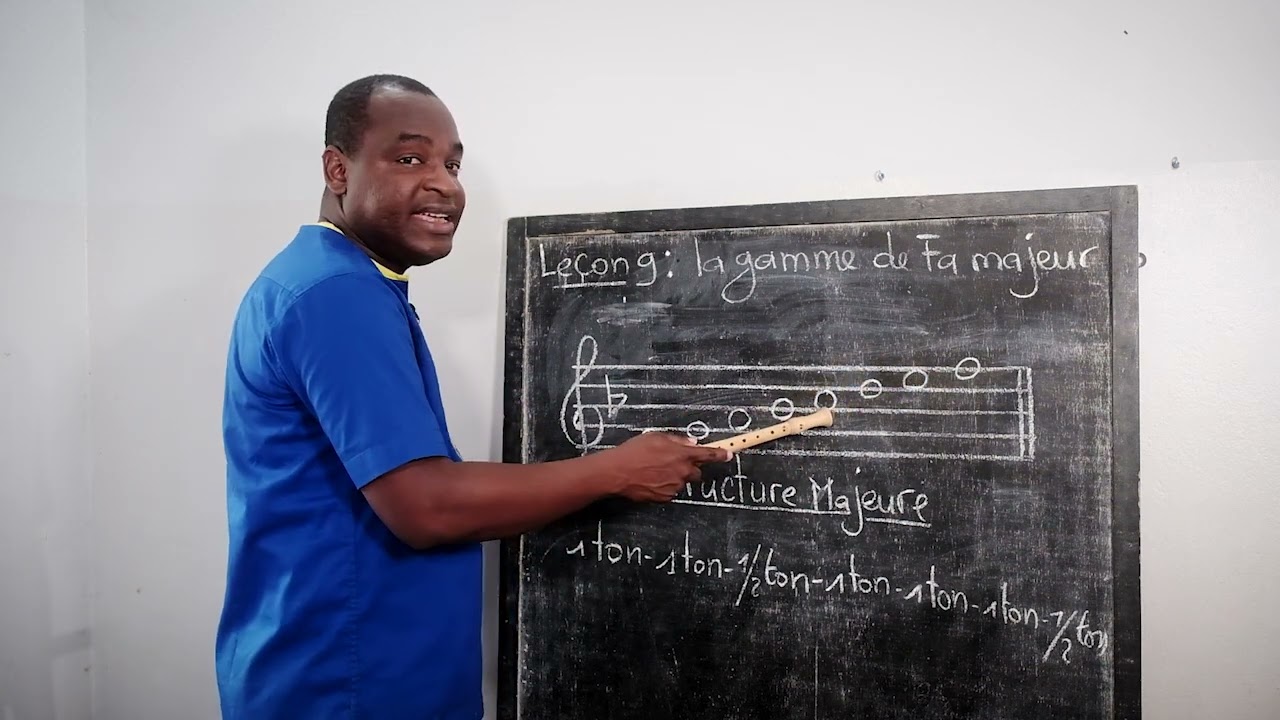 Leçon 9: la gamme de Fa majeur
Structure Majeure
1 ton - 1 ton - 1/2 ton - 1 ton - 1 ton - 1 ton - 1/2 ton